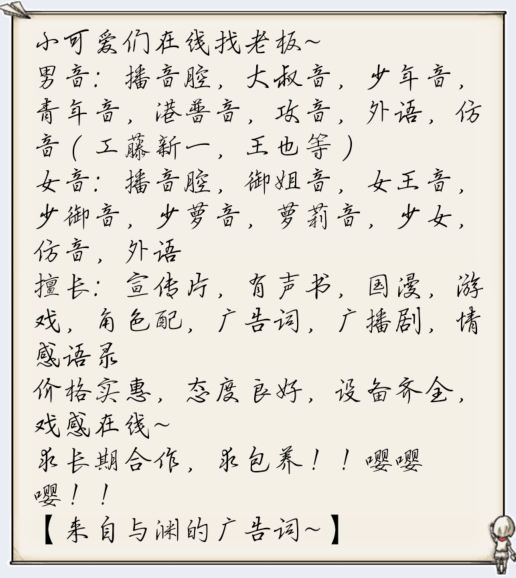 小可爱们在线找老板~
男音：播音腔，大叔音，少年音，
青年音，港普音，攻音，外语，仿
音（工藤新一，王也等）
女音：播音腔，御姐音，女王音，
少御音，少萝音，萝莉音，少女，
仿音，外语
擅长：宣传片，有声书，国漫，游
戏，角色配，广告词，广播剧，情
感语录
价格实惠，态度良好，设备齐全，
戏感在线~
求长期合作，求包养！！嘤嘤
嘤！！
【来自与渊的广告词~】